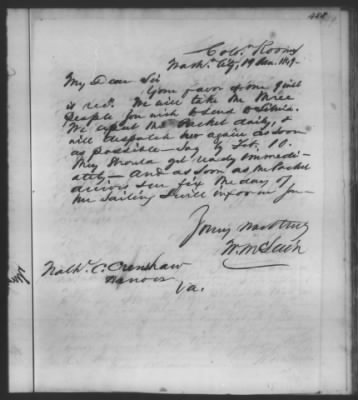 Colo. Rooms
Wash. City, 19 Jan.
My Dear Sir
Your favor of one inst
is recd. We will take the three
people you wish to send to Liberia.
We expect the Packet daily, &
will despatch her again as soon
as possible - Say by Feb. 10.
They should get ready immedi-
ately - and as soon as the Packet
arrives & we fix the day of
her Sailing I will inform you -
Yours
W. McLain
Nathl. C. Crenshaw
Hanover
Va.